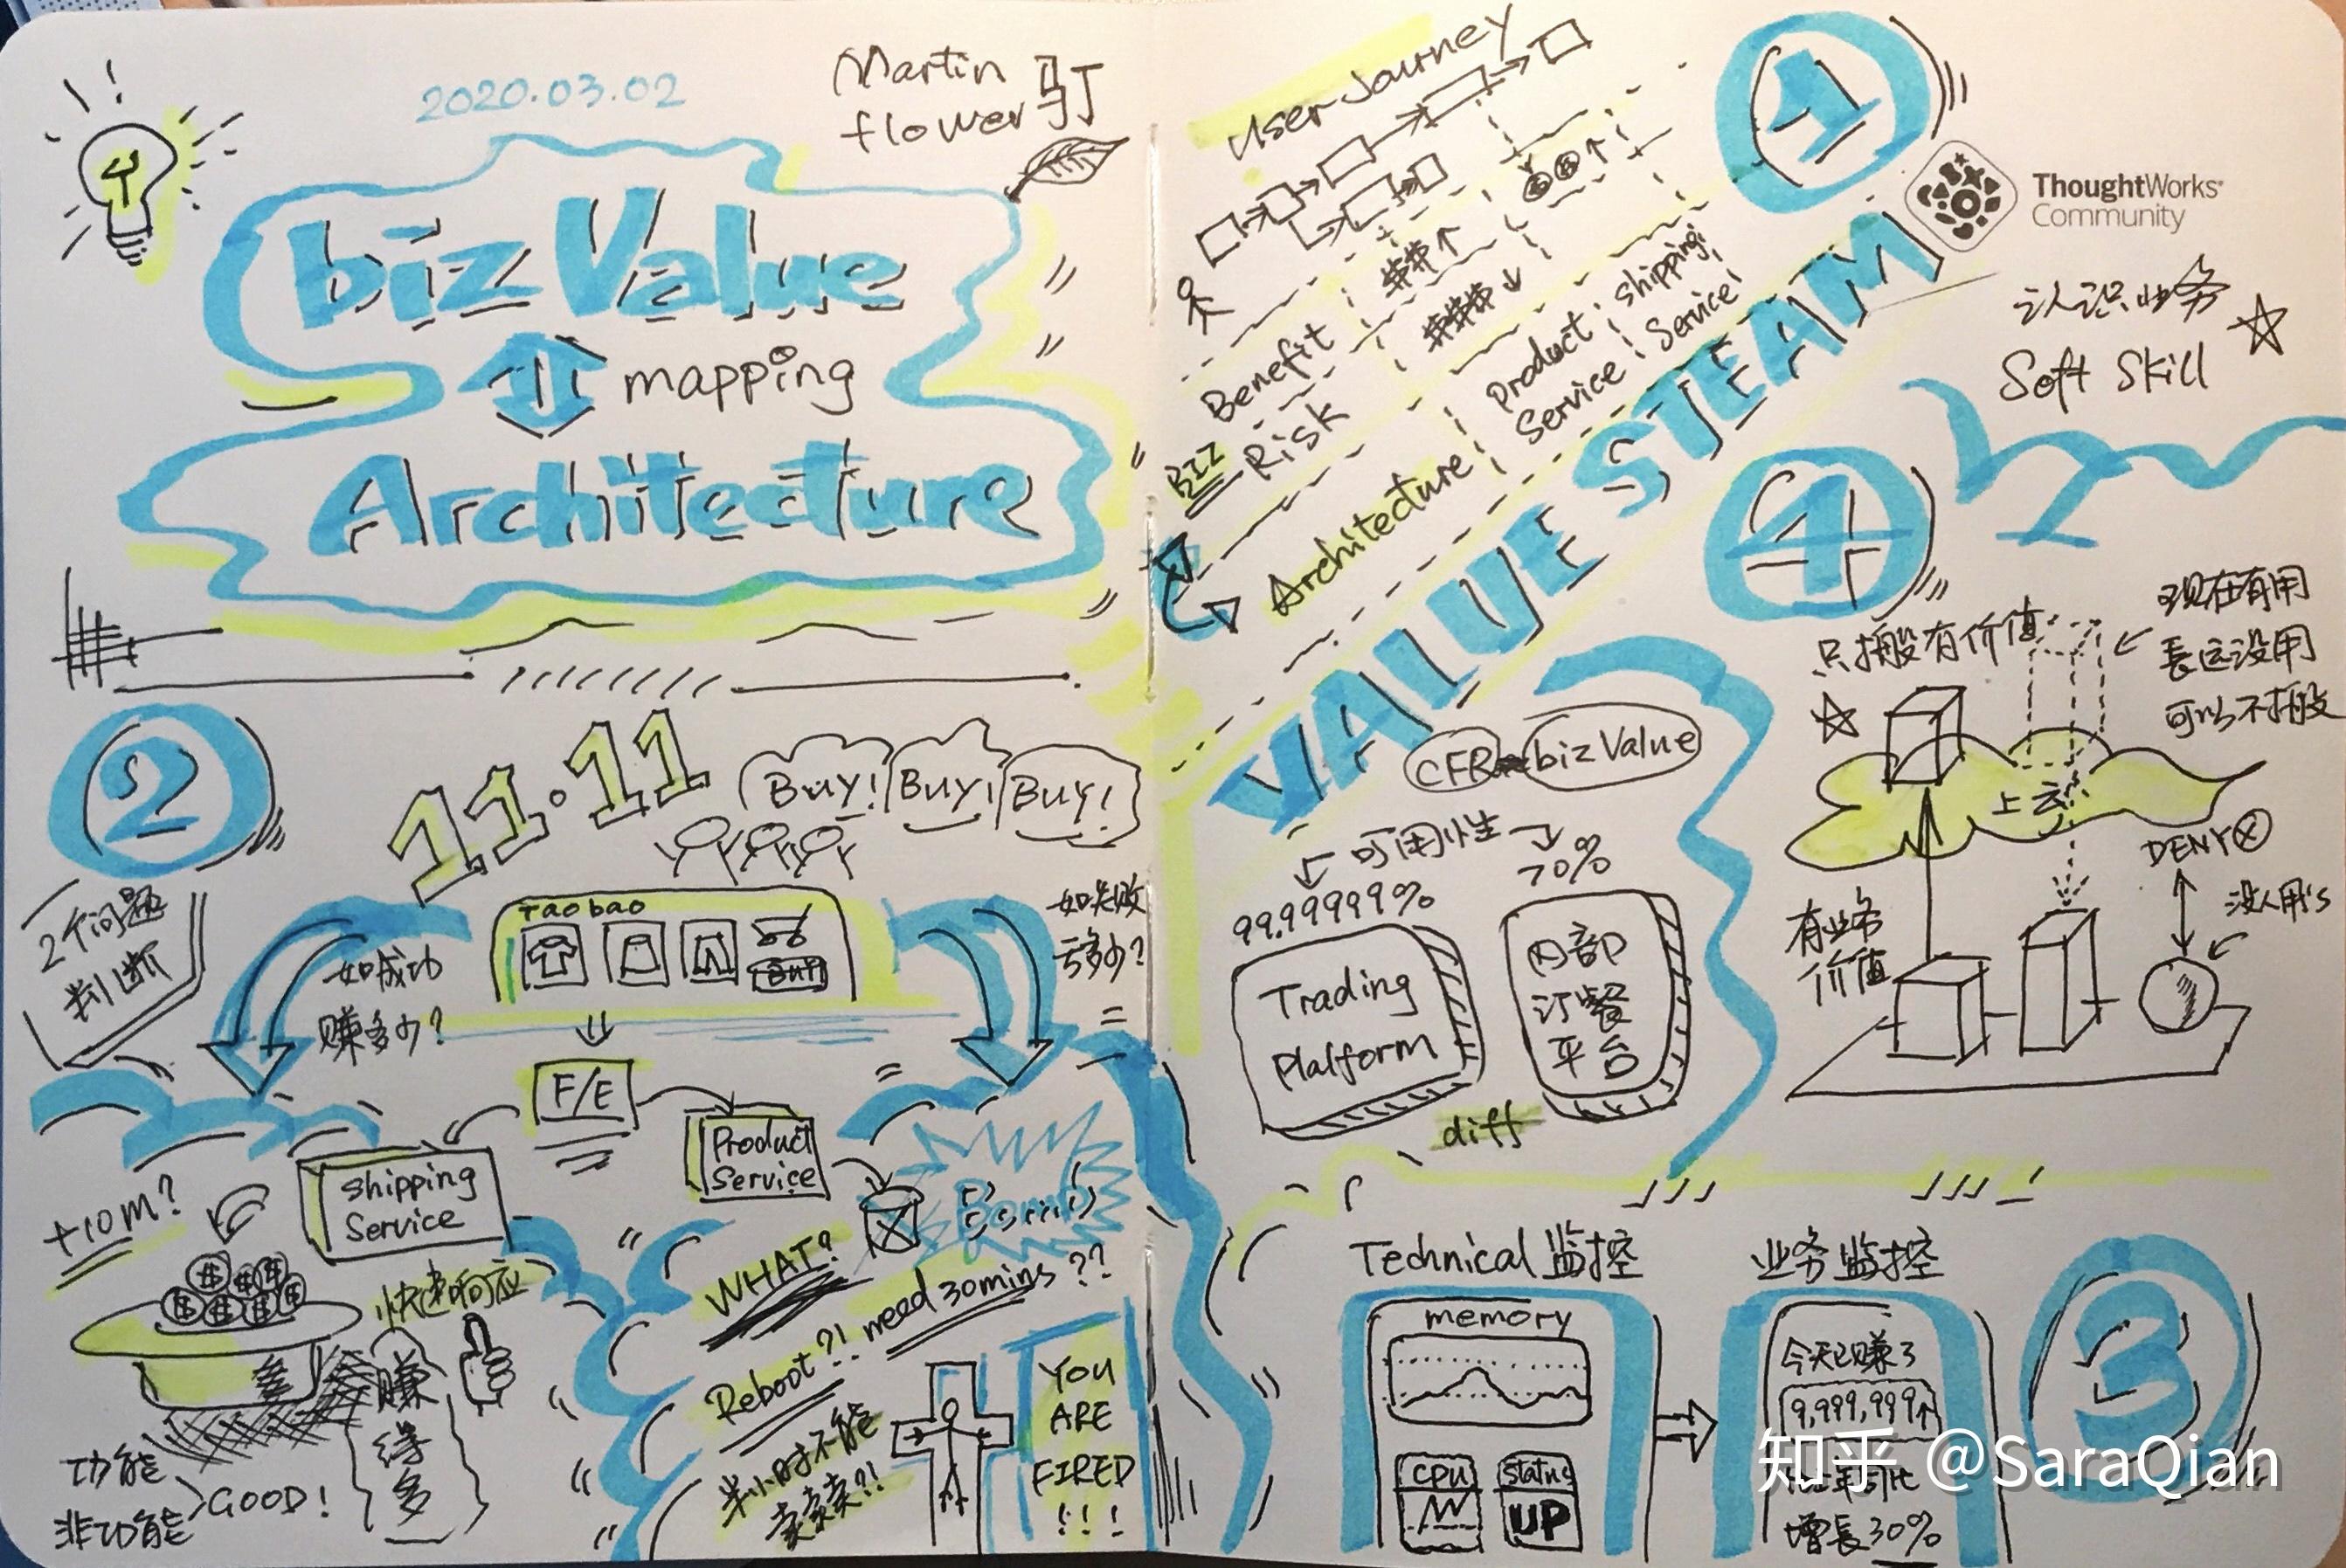 2020.03.02
Martin
flower 叮
biz Value
mapping
Architecture
1
User Journey
$$↑
Benefit
##↑
Risk
###↓
BIZ
Architecture
Product
Service
Shipping
Service
VALUE STEAM
ThoughtWorks
Community
认识业务
Soft Skill
2
2个问题
判断
11.11
Buy!
Buy!
Buy!
Taobao
Buy
如成功
赚多少?
如失败
亏多少?
F/E
Shipping
Service
Product
Service
+10m?
快速响应
赚
得
多
功能
非功能
GOOD!
Bomb
WHAT?
Reboot?! need 30mins??
半小时不能
卖卖卖?!
YOU
ARE
FIRED
!!!
CFR
biz Value
可用性
99.99999%
70%
Trading
Platform
内部
订餐
平台
diff
4
只搬有价值
现在有用
長远没用
可以不搬
上云
有业务
价值
DENY
没人用's
3
Technical 监控
memory
CPU
Status
UP
业务监控
今天已赚了
9,999,999↑
增長30%
知乎 @SaraQian